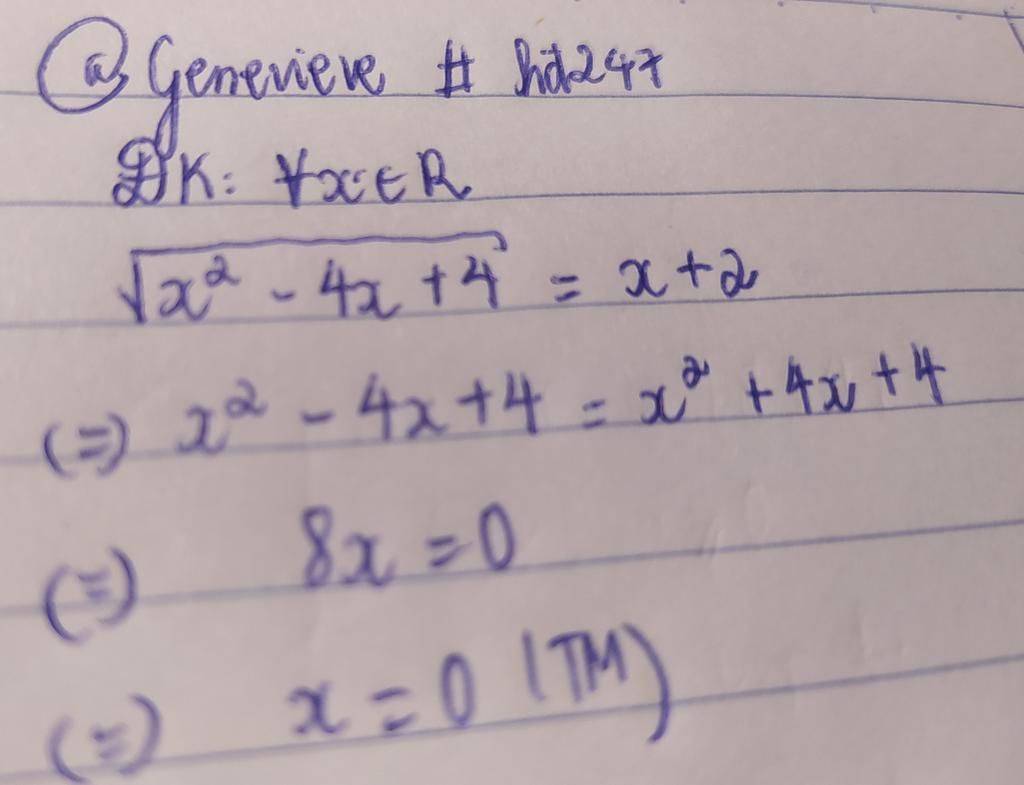 @Genevieve # hd247
ĐK: ∀x∈R
√(x² - 4x + 4) = x + 2
(=) x² - 4x + 4 = x² + 4x + 4
(=) 8x = 0
(=) x = 0 (TM)